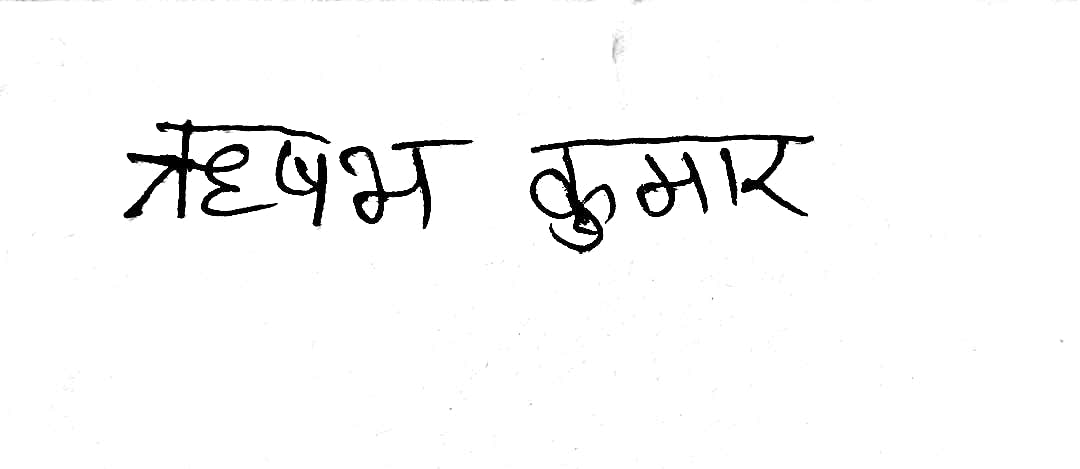 ऋषभ कुमार